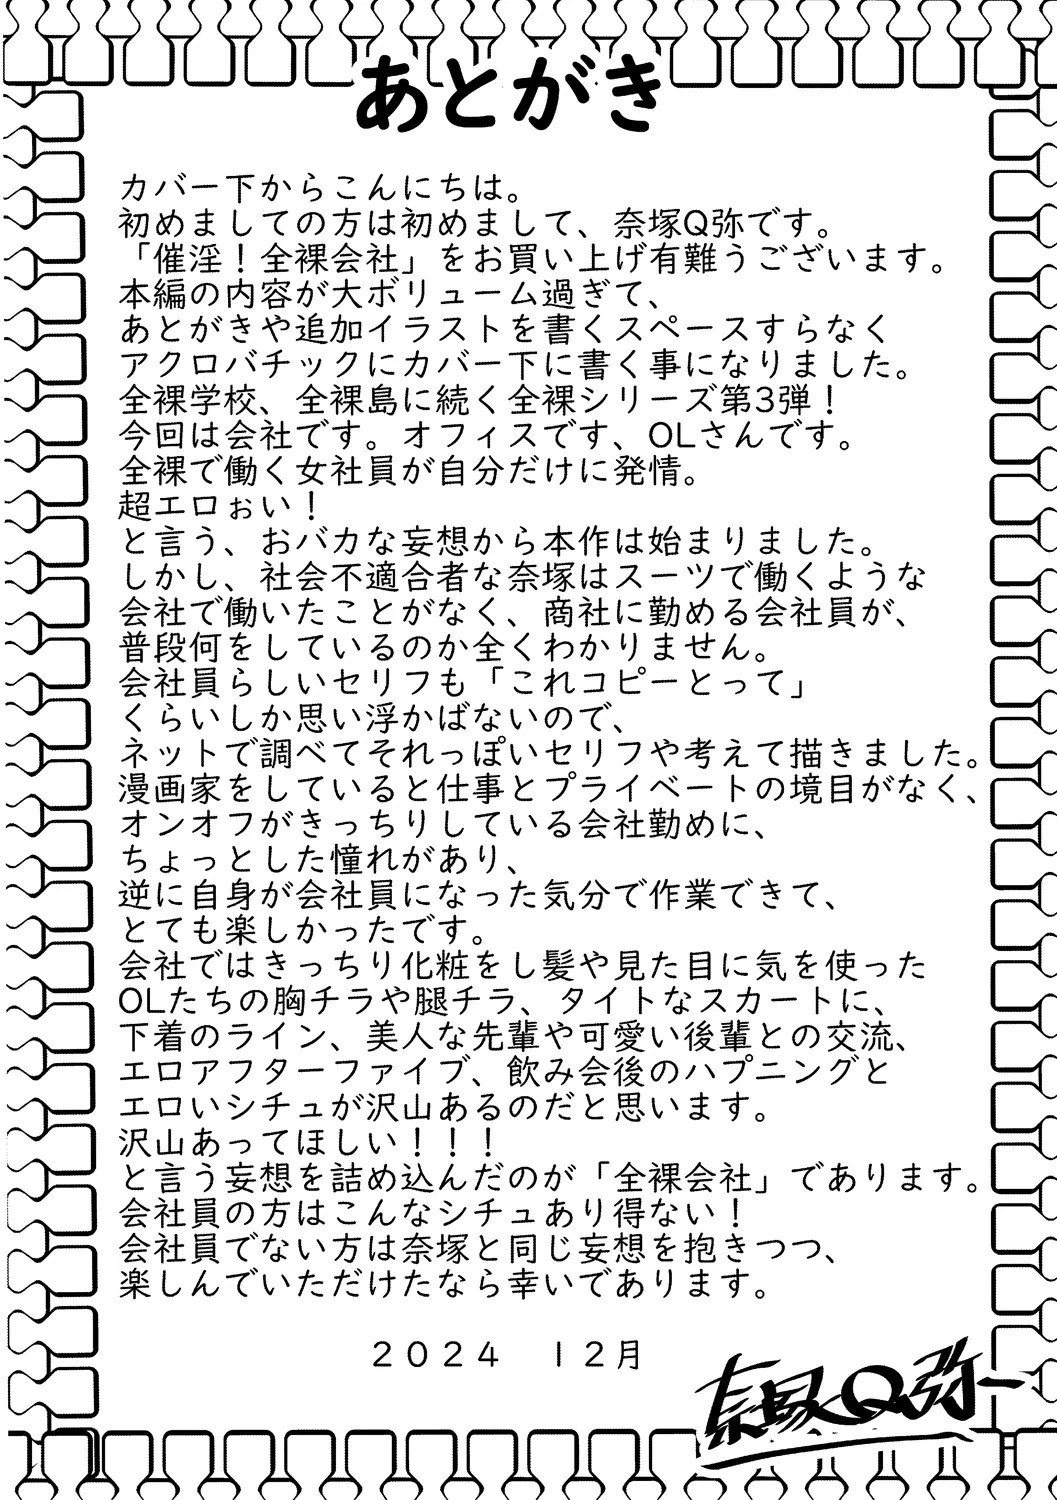 あとがき
カバー下からこんにちは。
初めましての方は初めまして、奈塚Q弥です。
「催淫！全裸会社」をお買い上げ有難うございます。
本編の内容が大ボリューム過ぎて、
あとがきや追加イラストを書くスペースすらなく
アクロバチックにカバー下に書く事になりました。
全裸学校、全裸島に続く全裸シリーズ第3弾！
今回は会社です。オフィスです、OLさんです。
全裸で働く女社員が自分だけに発情。
超エロぉい！
と言う、おバカな妄想から本作は始まりました。
しかし、社会不適合者な奈塚はスーツで働くような
会社で働いたことがなく、商社に勤める会社員が、
普段何をしているのか全くわかりません。
会社員らしいセリフも「これコピーとって」
くらいしか思い浮かばないので、
ネットで調べてそれっぽいセリフや考えて描きました。
漫画家をしていると仕事とプライベートの境目がなく、
オンオフがきっちりしている会社勤めに、
ちょっとした憧れがあり、
逆に自身が会社員になった気分で作業できて、
とても楽しかったです。
会社ではきっちり化粧をし髪や見た目に気を使った
OLたちの胸チラや腿チラ、タイトなスカートに、
下着のライン、美人な先輩や可愛い後輩との交流、
エロアフターファイブ、飲み会後のハプニングと
エロいシチュが沢山あるのだと思います。
沢山あってほしい！！！
と言う妄想を詰め込んだのが「全裸会社」であります。
会社員の方はこんなシチュあり得ない！
会社員でない方は奈塚と同じ妄想を抱きつつ、
楽しんでいただけたなら幸いであります。
２０２４　１２月
奈塚Q弥